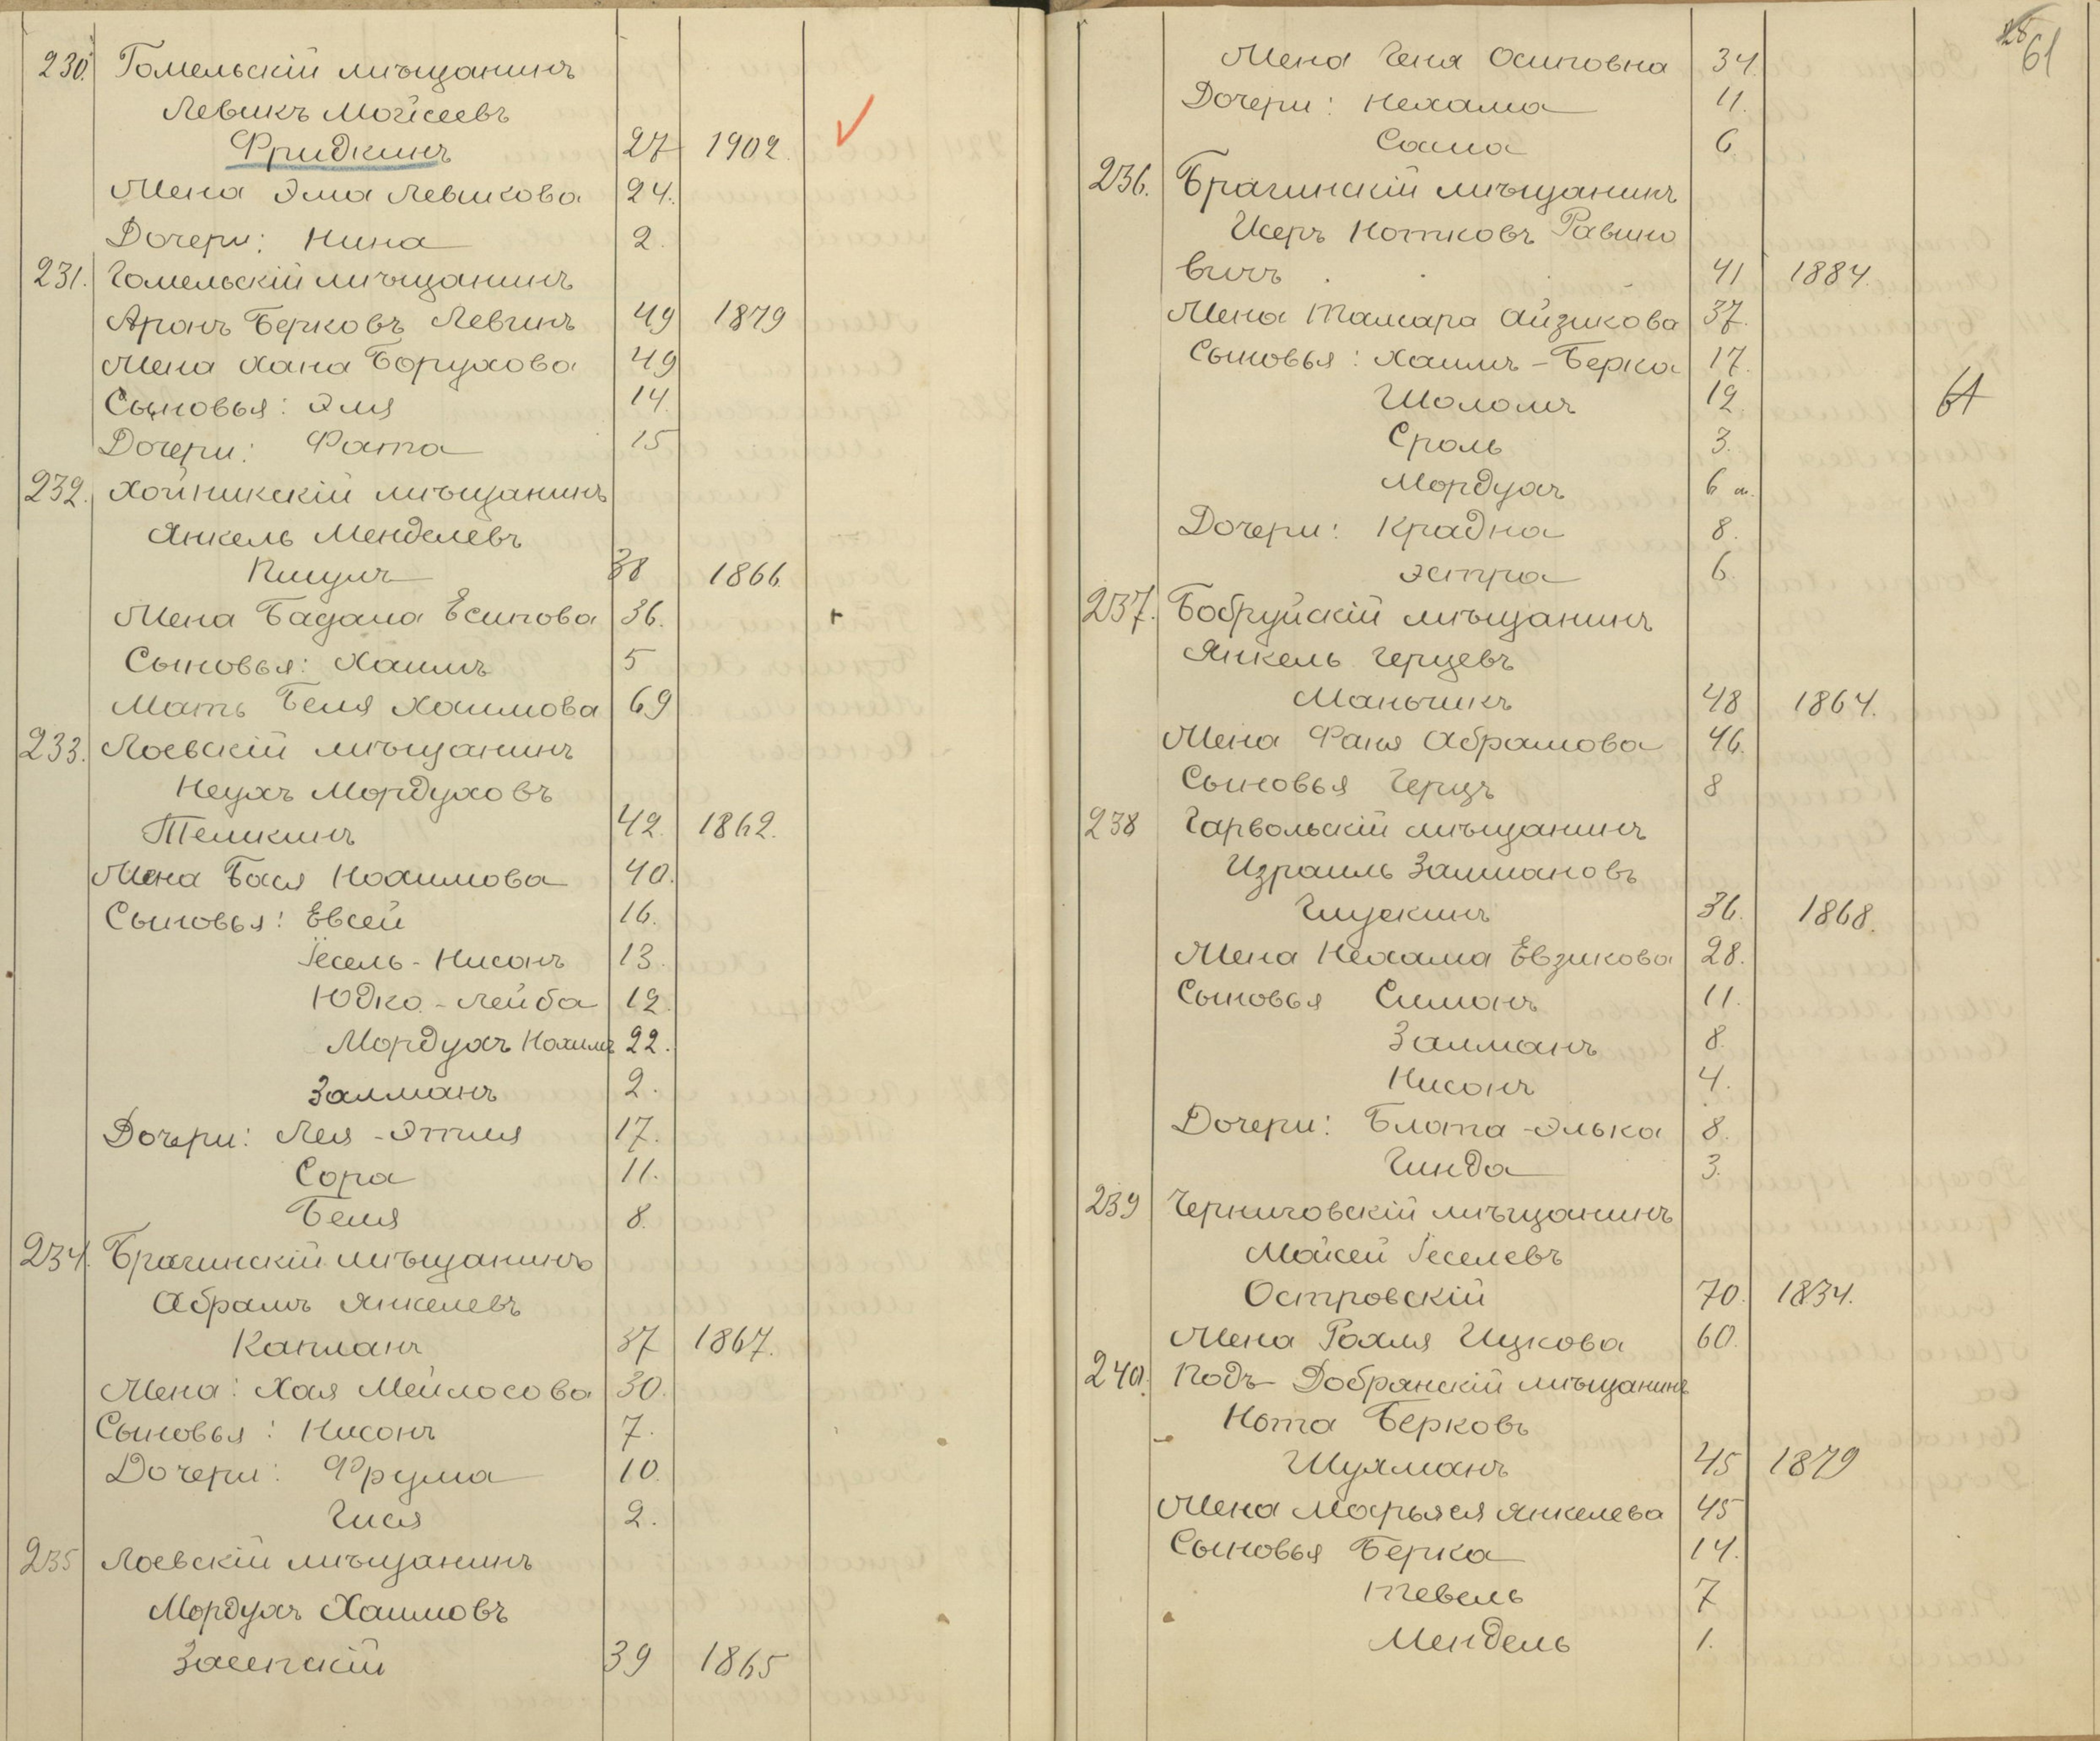 230. Гомельскій мѣщанинъ
Левикъ Мойсеевъ
Фридкинъ 27 1902. ✓
Жена Эма Левикова 24.
Дочери: Нина 2.
231. Гомельскій мѣщанинъ
Аронъ Берковъ Левинъ 49 1879
Жена Хана Борухова 49
Сыновья: Эля 14.
Дочери: Фата 15
232. Хойникскій мѣщанинъ
Янкель Менделевъ
38 1866.
Жена Бадана Есипова 36.
Сыновья: Хаимъ 5
Мать Беля Хаимова 69
233. Лоевскій мѣщанинъ
Неухъ Мордуховъ
Темкинъ 42. 1862.
Жена Бася Нохимова 40.
Сыновья: Евсей 16.
Іесель-Нисонъ 13.
Юдко-Лейба 12.
Мордухъ Нохимъ 22.
Залманъ 2.
Дочери: Лея-Этля 17.
Сора 11.
Беля 8.
234. Брагинскій мѣщанинъ
Абрамъ Янкелевъ
Капланъ 37 1867.
Жена: Хая Мейлосова 30.
Сыновья: Нисонъ 7.
Дочери: Фрума 10.
Гися 2.
235 Лоевскій мѣщанинъ
Мордухъ Хаимовъ
39 1865
61
Жена Геня Осиповна 34.
Дочери: Нехама 11.
Соама 6.
236. Брагинскій мѣщанинъ
Исеръ Нотковъ Равино
вичъ 41 1884.
Жена Тамара Айзикова 37.
Сыновья: Хаимъ-Берка 17.
Шоломъ 12. 61
Сроль 3.
Мордухъ 6 м.
Дочери: Крадна 8.
Эстра 6.
237. Бобруйскій мѣщанинъ
Янкель Герцевъ
Маньчикъ 48 1864.
Жена Фаня Абрамова 46.
Сыновья Герцъ 8
238 Гарвольскій мѣщанинъ
Израиль Залмановъ
Глускинъ 36. 1868.
Жена Нехама Евзикова 28.
Сыновья Симонъ 11.
Залманъ 8.
Нисонъ 4.
Дочери: Блата-Элька 8.
Гинда 3.
239 Черниговскій мѣщанинъ
Мойсей Іеселевъ
Островскій 70. 1834.
Жена Рохля Ицкова 60.
240. Подъ-Добрянскій мѣщанинъ
Нота Берковъ
Шулманъ 45 1879
Жена Марьяся Янкелева 45
Сыновья Берка 14.
Тевель 7
Мендель 1.